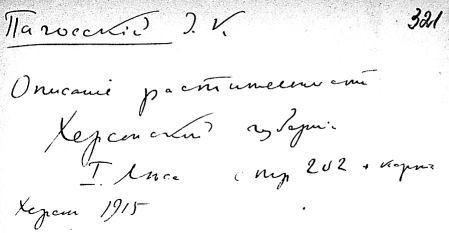 Пачосскій І. К. 321
Описаніе растительности
Херсонской губерніи
I. Лѣса стр 202 + карта
Херсон 1915